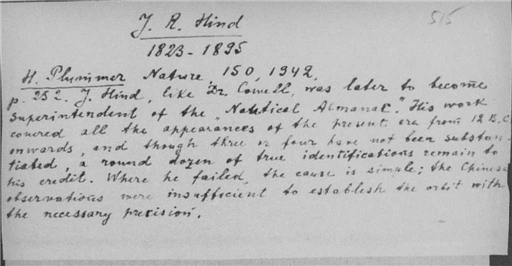 J. R. Hind
515
1823-1895
H. Plummer Nature, 150, 1942,
p. 252. J. Hind, like Dr. Cowell, was later to become
Superintendent of the "Nautical Almanac". His work
covered all the appearances of the present era from 12 B.C.
onwards, and though three or four have not been substan-
tiated, a round dozen of true identifications remain to
his credit. Where he failed, the cause is simple; the Chinese
observations were insufficient to establish the orbit with
the necessary precision.